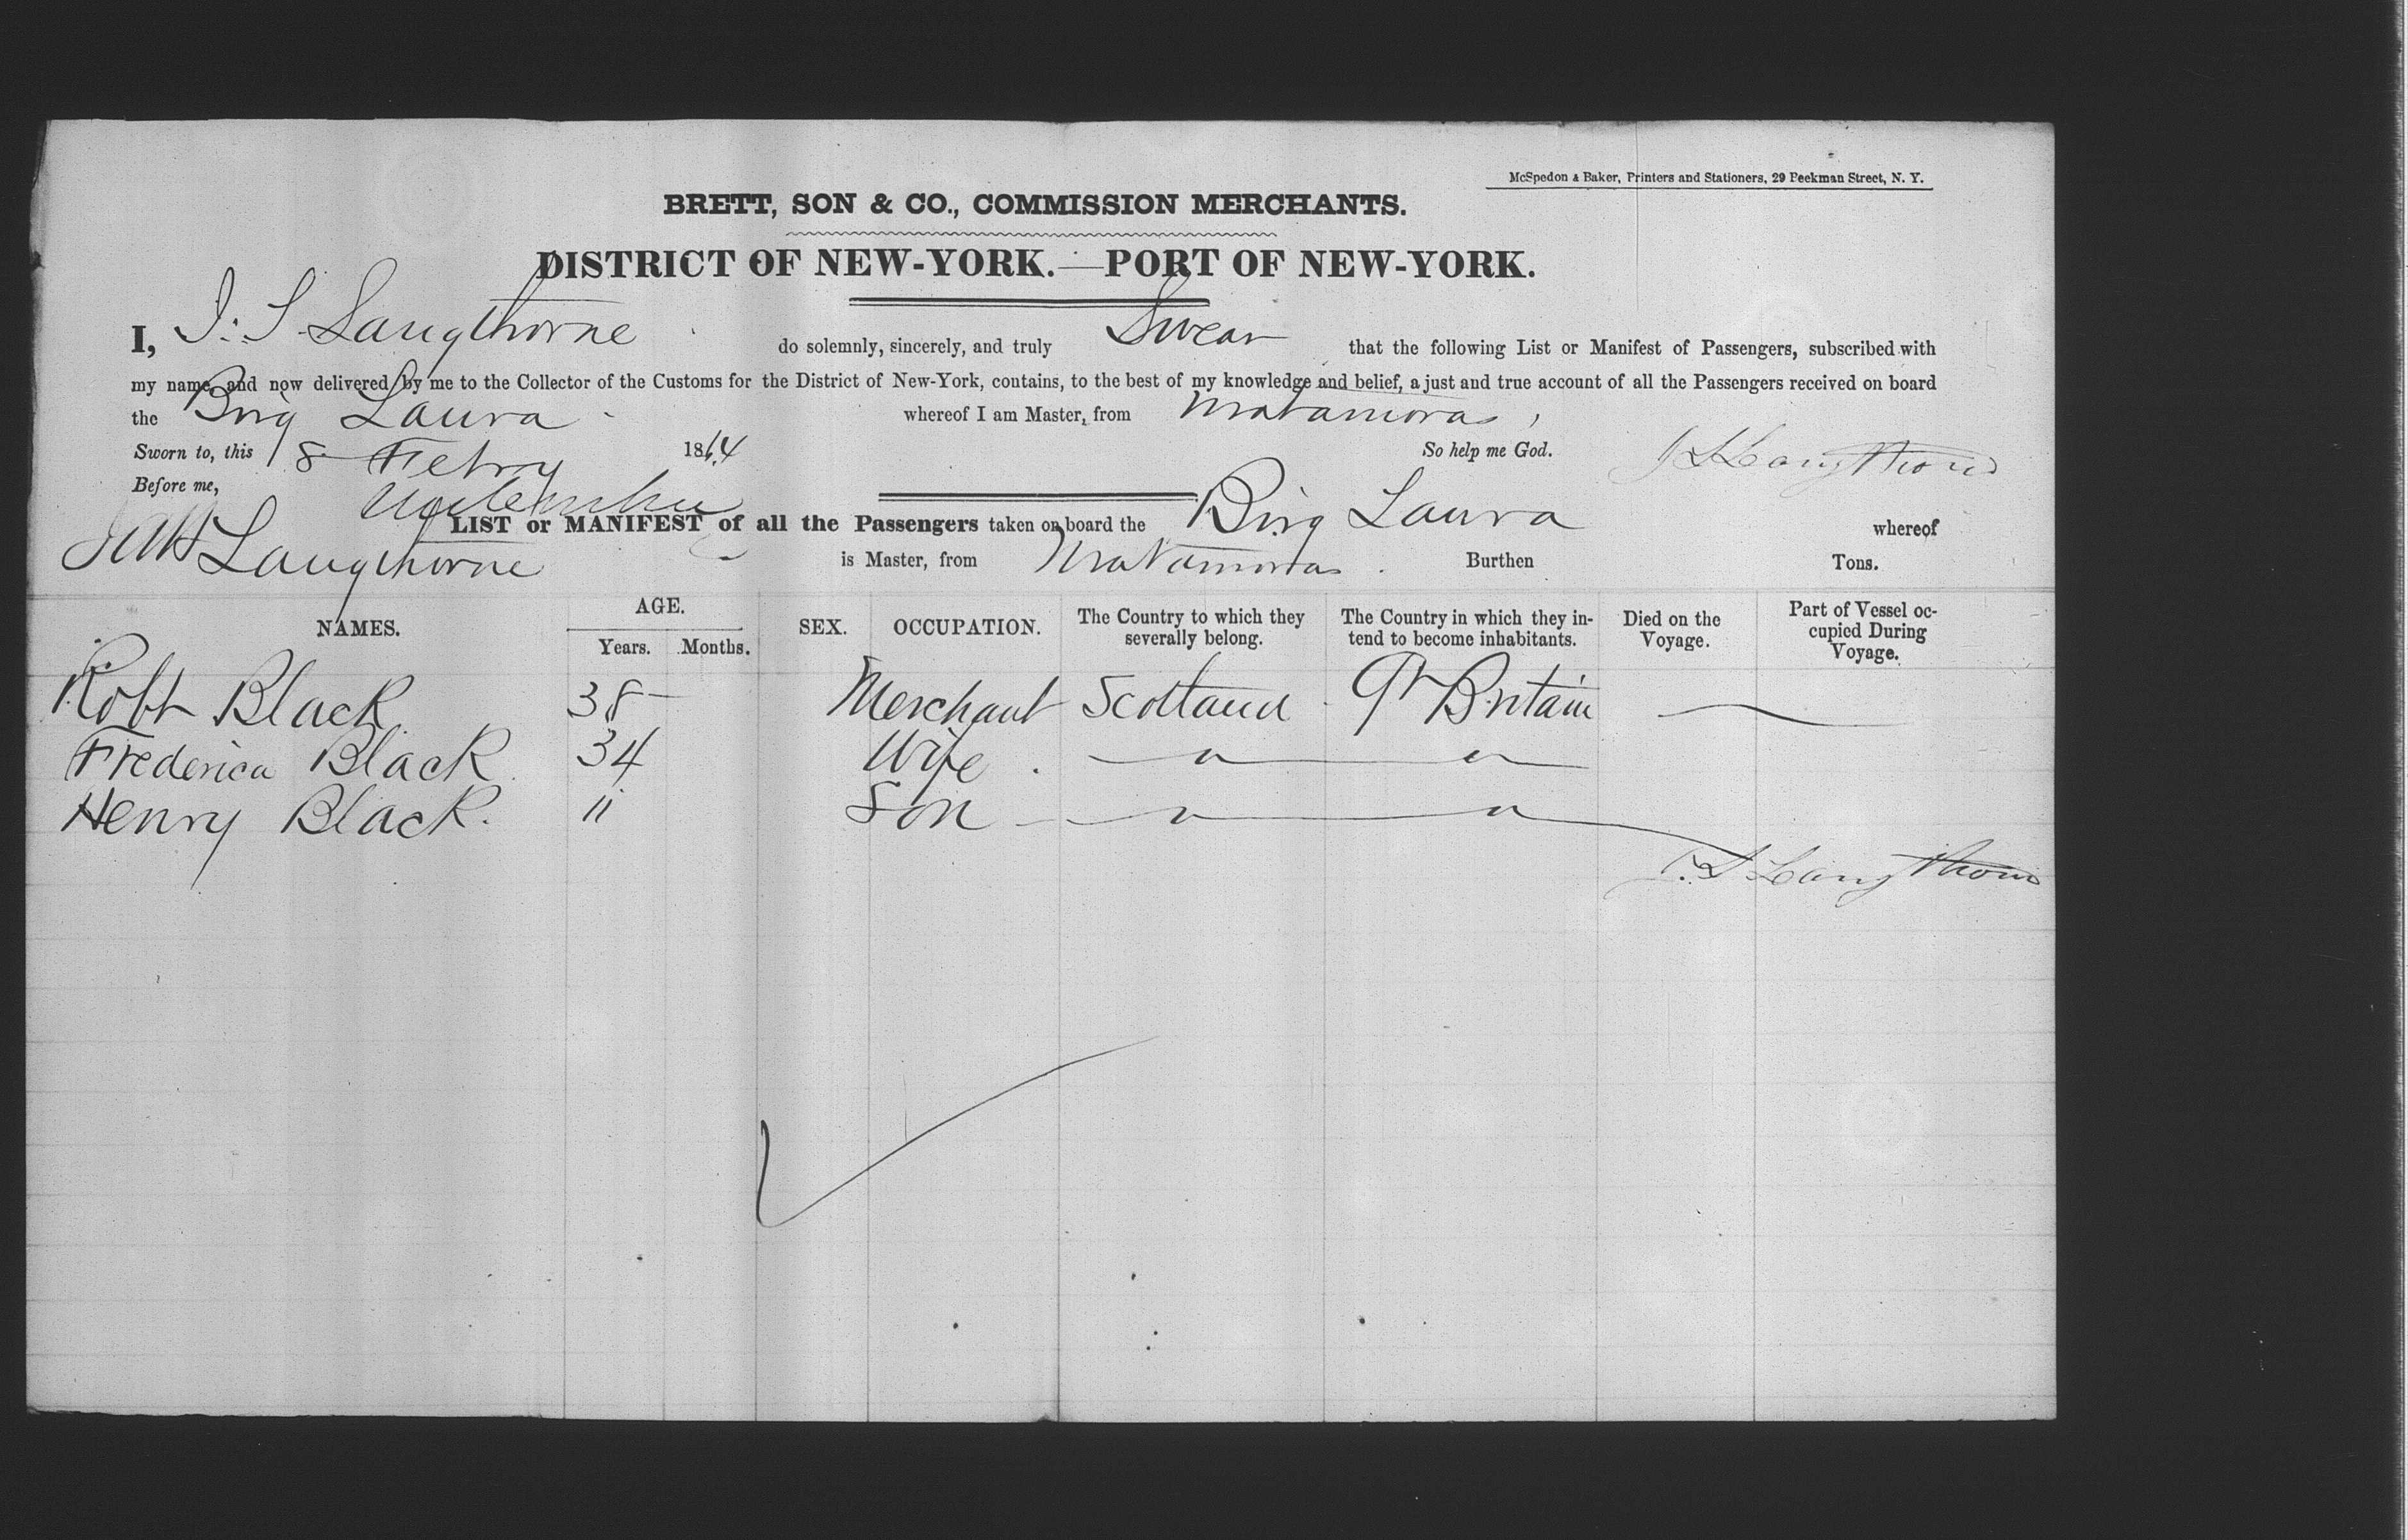 McSpedon & Baker, Printers and Stationers, 29 Beekman Street, N. Y.
BRETT, SON & CO., COMMISSION MERCHANTS.
DISTRICT OF NEW-YORK.—PORT OF NEW-YORK.
I, J. S. Langthorne do solemnly, sincerely, and truly Swear that the following List or Manifest of Passengers, subscribed with
my name, and now delivered by me to the Collector of the Customs for the District of New-York, contains, to the best of my knowledge and belief, a just and true account of all the Passengers received on board
the Brig Laura whereof I am Master, from Matamoras,
Sworn to, this 8 Febry 1864 So help me God. J S Langthorne
Before me,
LIST or MANIFEST of all the Passengers taken on board the Brig Laura whereof
Langthorne is Master, from Matamoras. Burthen Tons.
NAMES. AGE. Years. Months. SEX. OCCUPATION. The Country to which they severally belong. The Country in which they intend to become inhabitants. Died on the Voyage. Part of Vessel occupied During Voyage.
Robt Black 38 Merchant Scotland Gt Britain
Frederica Black 34 Wife. " "
Henry Black. 11 Son " "
J. S Langthorne